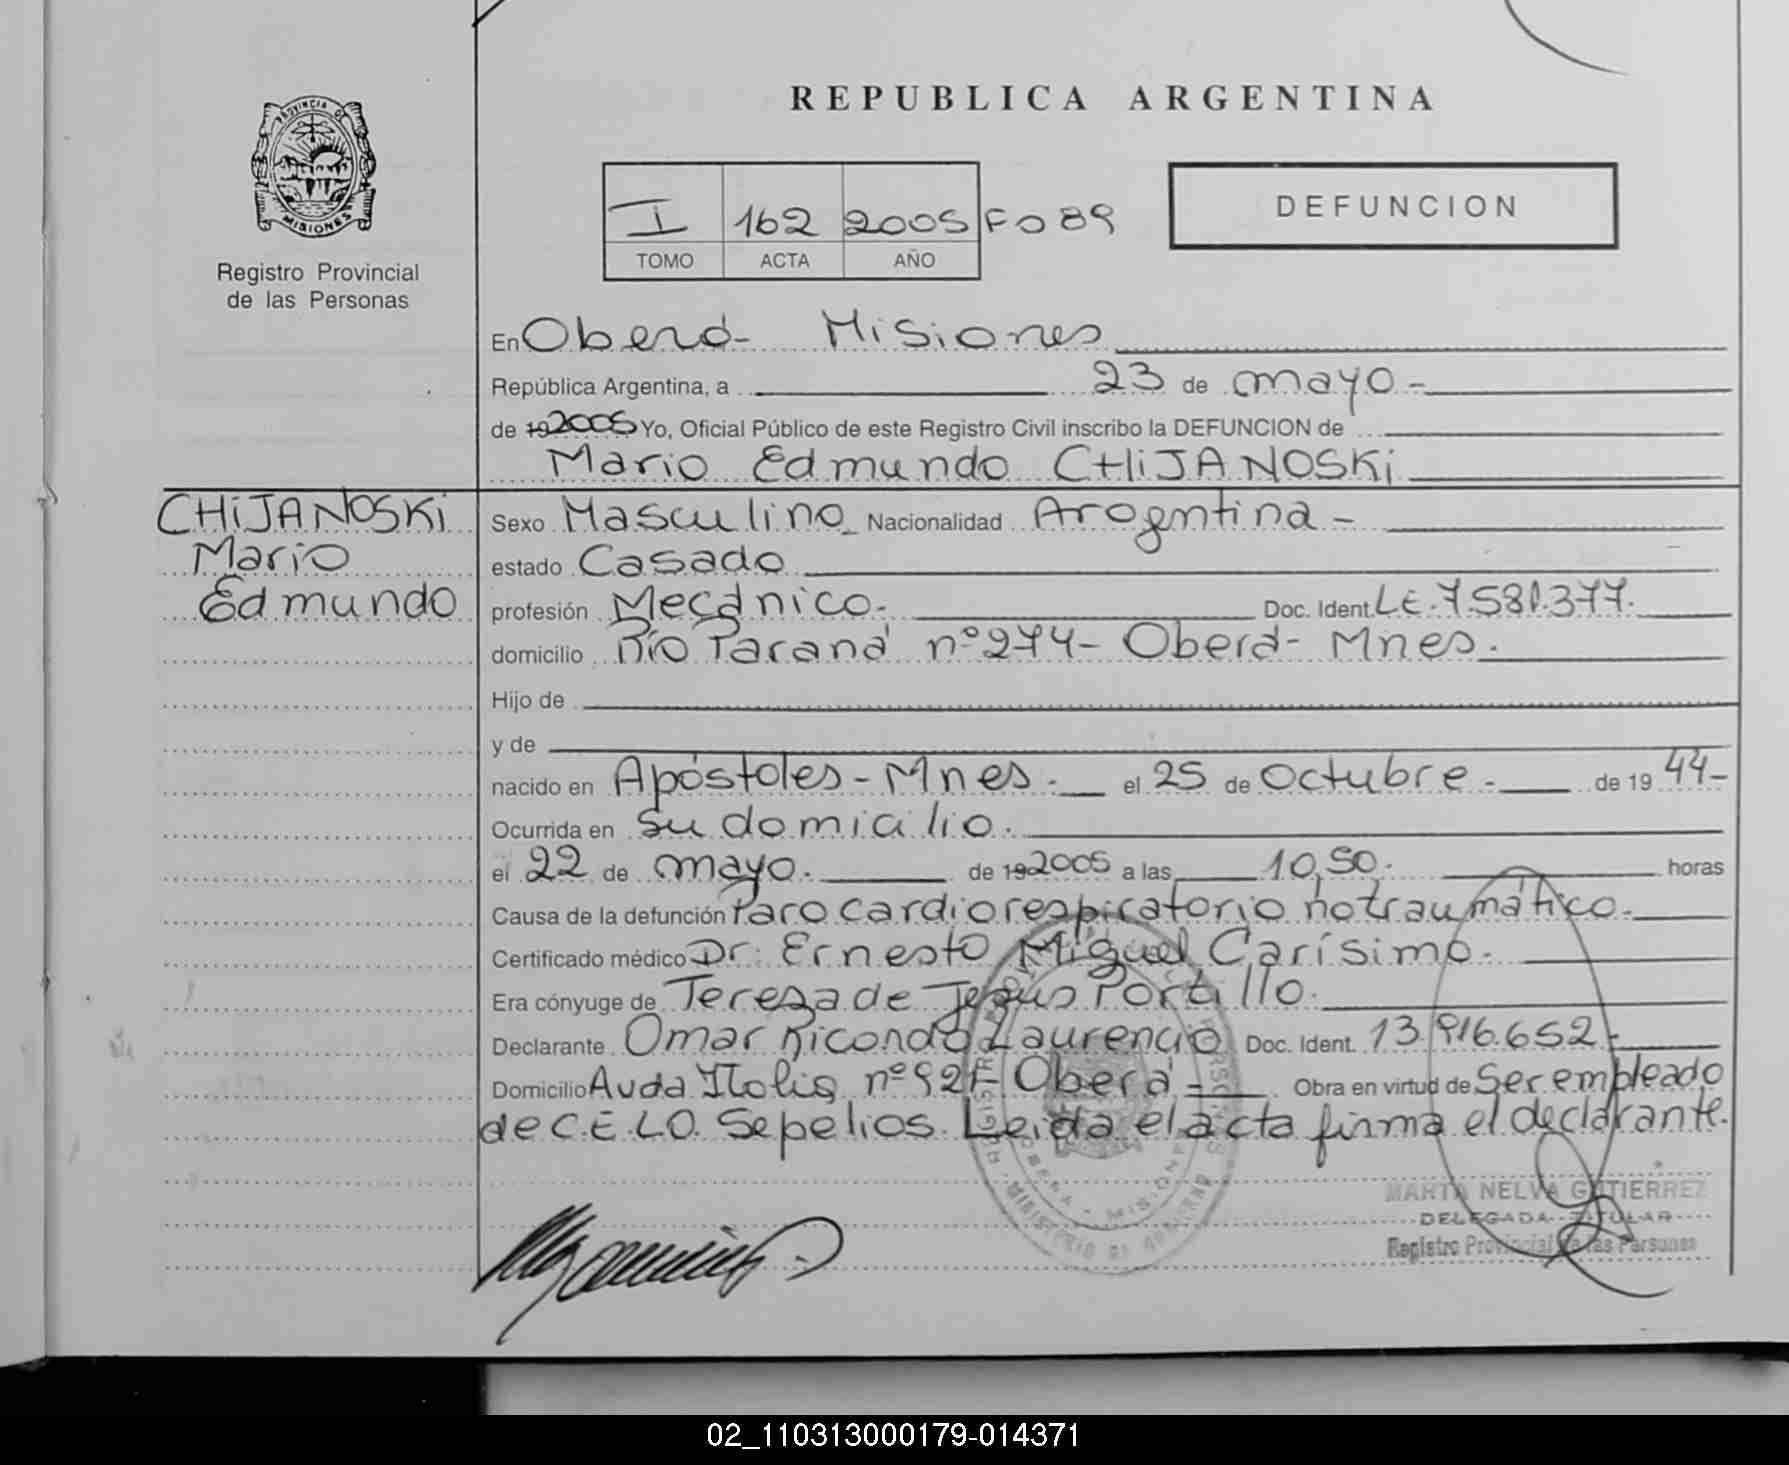 PROVINCIA DE
MISIONES
Registro Provincial
de las Personas
REPUBLICA ARGENTINA
I 162 2005 Fo 89
TOMO ACTA AÑO
DEFUNCION
En Oberá- Misiones
República Argentina, a 23 de mayo-
de 19 2005 Yo, Oficial Público de este Registro Civil inscribo la DEFUNCION de
Mario Edmundo CHiJANOSKi
CHiJANOSKi
Mario
Edmundo
Sexo Masculino Nacionalidad Argentina-
estado Casado
profesión Mecánico. Doc. Ident. LE. 7.581.377.
domicilio Río Paraná nº 274- Oberá- Mnes.
Hijo de
y de
nacido en Apóstoles-Mnes. el 25 de Octubre. de 19 44-
Ocurrida en su domicilio.
el 22 de mayo. de 19 2005 a las 10,50. horas
Causa de la defunción Paro cardiorespiratorio no traumático.
Certificado médico Dr. Ernesto Miguel Carísimo.
Era cónyuge de Teresa de Jesus Portillo.
Declarante Omar Ricondo Laurencio Doc. Ident. 13.916.652-
Domicilio Avda Italia nº 921- Oberá- Obra en virtud de Ser empleado
de C.E.L.O. Sepelios. Leida el acta firma el declarante.
OBERA - MISIONES
MINISTERIO DE GOBIERNO
MARTA NELVA GUTIERREZ
DELEGADA TITULAR
Registro Provincial de las Personas
02_110313000179-014371